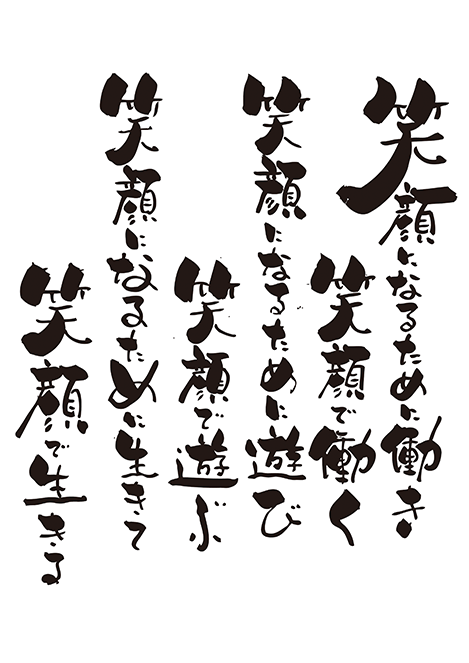 笑顔になるために働き
笑顔で働く
笑顔になるために遊び
笑顔で遊ぶ
笑顔になるために生きて
笑顔で生きる